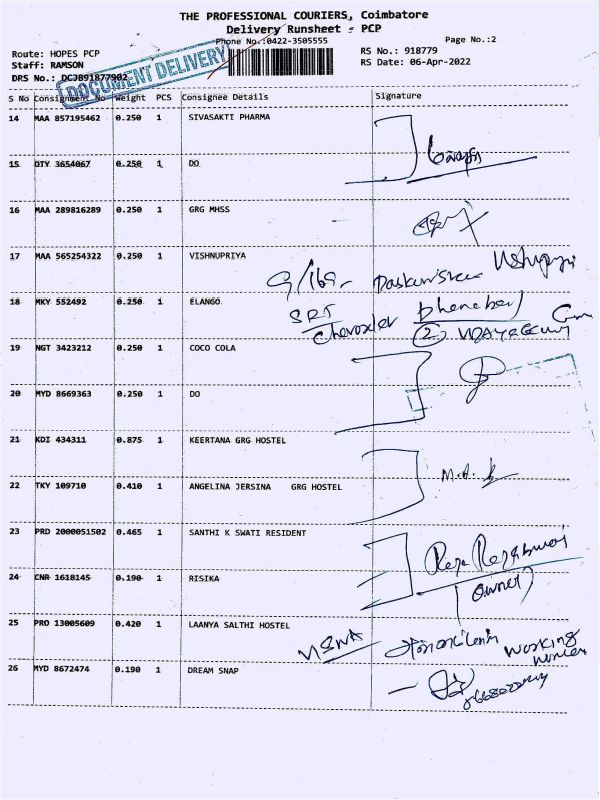 THE PROFESSIONAL COURIERS, Coimbatore
Delivery Runsheet - PCP
Phone No.:0422-3505555
Page No.:2
Route: HOPES PCP
RS No.: 918779
Staff: RAMSON
RS Date: 06-Apr-2022
DRS No.: DCJB91877902
DOCUMENT DELIVERY
S No Consignment No Weight PCS Consignee Details Signature
14 MAA 857195462 0.250 1 SIVASAKTI PHARMA
15 DTY 3654067 0.250 1 DO
16 MAA 289816289 0.250 1 GRG MHSS
17 MAA 565254322 0.250 1 VISHNUPRIYA
18 MKY 552492 0.250 1 ELANGO
SRT
19 NGT 3423212 0.250 1 COCO COLA
20 MYD 8669363 0.250 1 DO
21 KDI 434311 0.875 1 KEERTANA GRG HOSTEL
22 TKY 109710 0.410 1 ANGELINA JERSINA GRG HOSTEL
23 PRD 2000051502 0.465 1 SANTHI K SWATI RESIDENT
24 CNR 1618145 0.190 1 RISIKA
(owner)
25 PRO 13005609 0.420 1 LAANYA SALTHI HOSTEL
working
women
26 MYD 8672474 0.190 1 DREAM SNAP